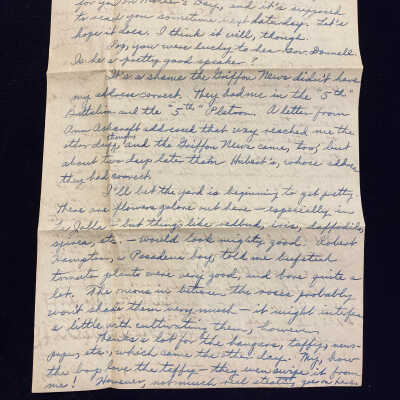 for you on Mother's Day, and it's supposed
to reach you sometime next Saturday. Let's
hope it does. I think it will, though.
Say, you were lucky to hear Gov. Donnell.
Is he a pretty good speaker?
It's a shame the Griffon News didn't have
my address correct. They had me in the "5th"
Battalion and the "5th" Platoon. A letter from
Ann Ashcraft addressed that way reached me the
other day, and the Griffon News came, too, but
about two days later than Hubert's, whose address
they had correct.
I'll bet the yard is beginning to get pretty.
There are flowers galore out here — especially in
La Jolla — but things like redbud, iris, daffodils,
spirea, etc. — would look mighty good. Robert
Hampton, a Pasadena boy, told me beefsteak
tomato plants were very good, and bore quite a
lot. The onions in between the roses probably
won't shade them very much — it might interfere
a little with cultivating them, however.
Thanks a lot for the hangars, taffy, news-
paper, etc., which came the other day. My, how
the boys love the taffy — they even swipe it from
me! However, not much real stealing goes on here